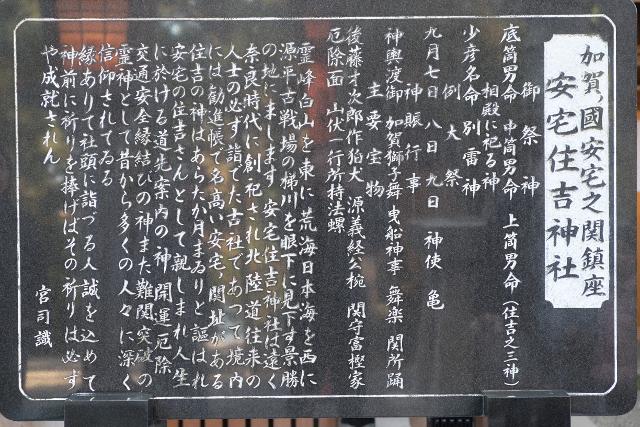 加賀ノ國安宅之関鎮座
安宅住吉神社
御祭神
底筒男命 中筒男命 上筒男命(住吉之三神)
相殿に祀る神
少彦名命 別雷神
例大祭
九月七日 八日 九日 神使 亀
神賑行事
神輿渡御 加賀獅子舞 曳船神事 舞楽 関所踊
主要宝物
後藤才次郎作狛犬 源義経公椀 関守富樫家
厄除面 山伏一行所持法螺
霊峰白山を東に荒海日本海を西に
源平古戦場の梯川を眼下に見下す景勝
の地にまします安宅住吉神社は遠く
奈良時代に創祀され北陸道往来の
人士の必ず詣でた古社であつて境内
には勧進帳で名高い安宅ノ関址がある
住吉の神はあらたか月まゐりと謳はれ
安宅の住吉さんとして親しまれ人生
に於ける道先案内の神 開運厄除
交通安全縁結びの神また難関突破の
霊神として昔から多くの人々に深く
信仰されてゐる
縁ありて社頭に詣づる人誠を込めて
神前に祈りを捧げばその祈りは必ず
や成就されん
宮司識